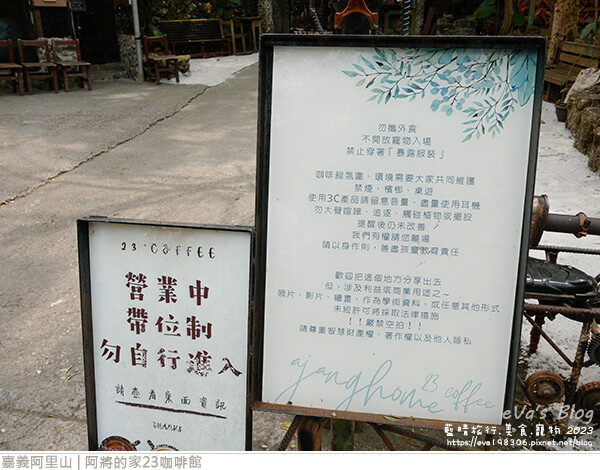 23·COFFEE
營業中
帶位制
勿自行進入
請查看桌面資訊
THANKS
勿攜外食
不開放寵物入場
禁止穿著『暴露服裝』
咖啡館氛圍、環境需要大家共同維護
禁煙、檳榔、桌遊
使用3C產品請留意音量，盡量使用耳機
勿大聲喧嘩、追逐、觸碰植物或擺設
提醒後仍未改善
我們有權請您離場
請以身作則，善盡孩童教育責任
歡迎把這個地方分享出去
但，涉及利益或商業用途之~
照片、影片、繪畫、作為學術資料、或任意其他形式
未經許可將採取法律措施
！！嚴禁空拍！！
請尊重智慧財產權、著作權以及他人隱私
ajanghome 23 coffee
eva's Blog
藍晴旅行.美食.寵物 2023
~http://eva198306.pixnet.net/blog~
嘉義阿里山 | 阿將的家23咖啡館